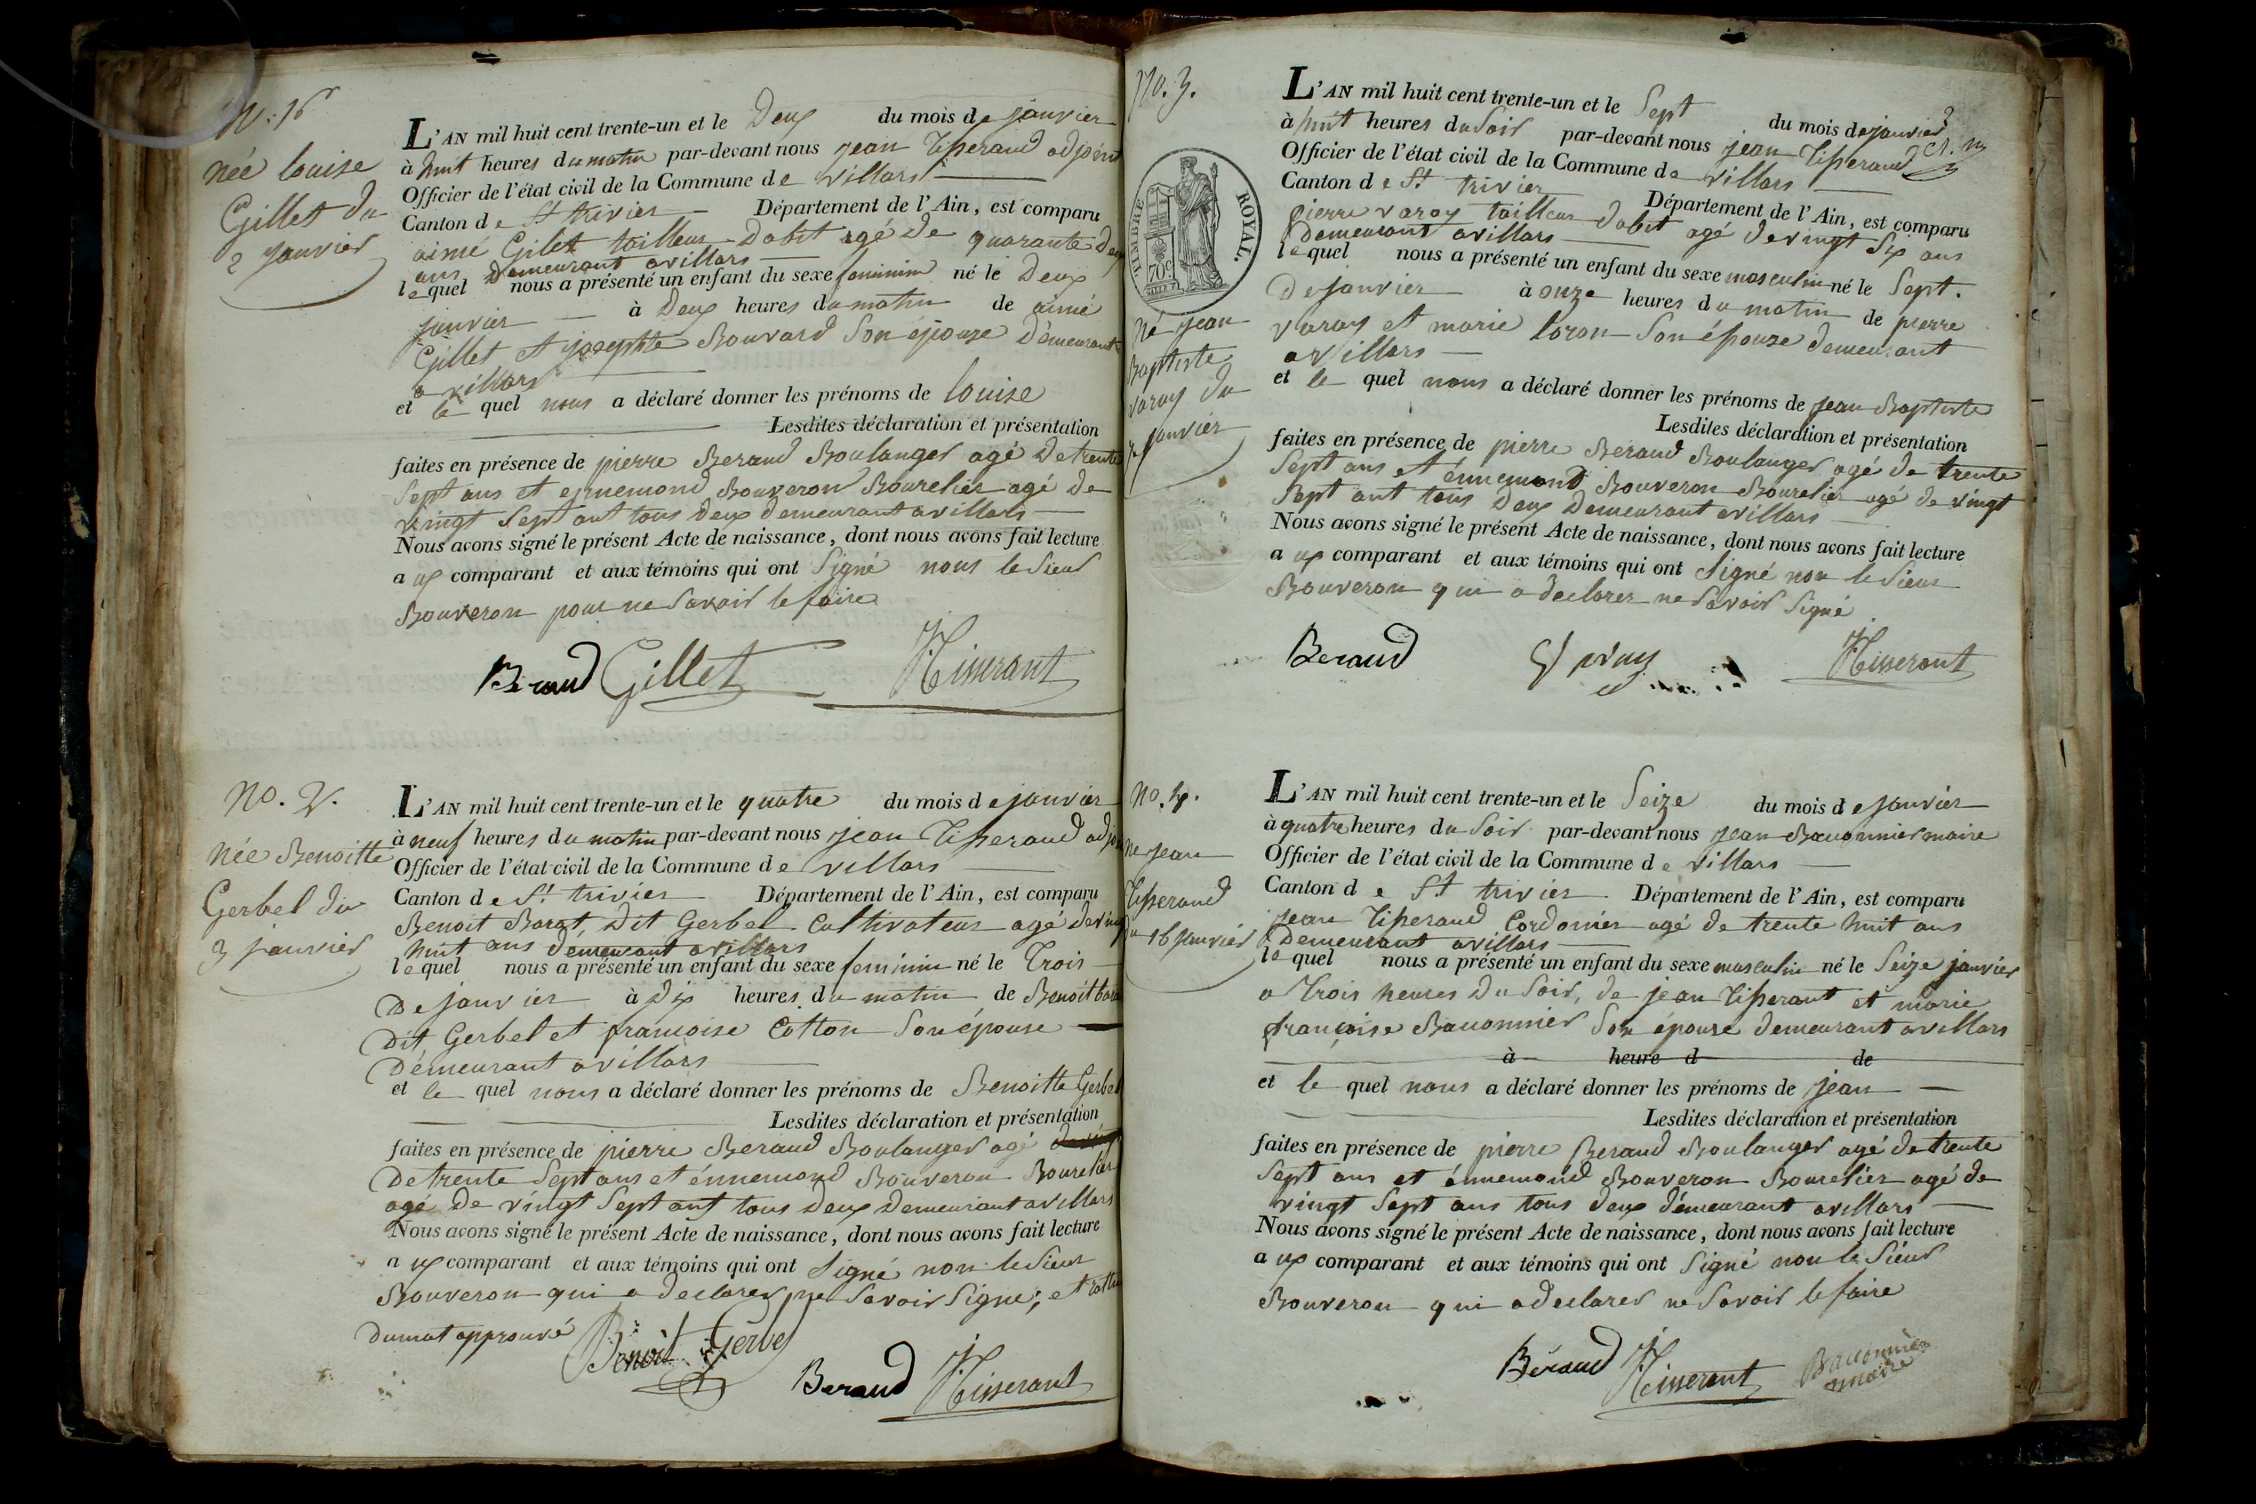 née louise
Gillet du
2 janvier
L'AN mil huit cent trente-un et le Deux du mois de janvier
à huit heures du matin par-devant nous jean Tisserand adjoint
Officier de l'état civil de la Commune de villars
Canton de St trivier Département de l'Ain, est comparu
aimé Gilet tailleur Dabit agé de quarante deux
ans Demeurant avillars
lequel nous a présenté un enfant du sexe feminin né le Deux
janvier à Deux heures du matin de aimé
Gillet et josephte Bouvard Son épouze Démeurant
a villars
et le quel nous a déclaré donner les prénoms de louise
Lesdites déclaration et présentation
faites en présence de pierre Beraud Boulanger agé De trente
Sept ans et ennemond Bouveron Bourelier agé de
vingt Sept ant tous Deux Demeurant avillars
Nous avons signé le présent Acte de naissance, dont nous avons fait lecture
a ux comparant et aux témoins qui ont Signé nous le Sieur
Bouveron pour ne Savoir le faire
Beraud Gillet JTisserant
No. 2.
née Benoitte
Gerbel du
3 janvier
L'AN mil huit cent trente-un et le quatre du mois de janvier
à neuf heures du matin par-devant nous jean Tisserand
Officier de l'état civil de la Commune de villars
Canton de St trivier Département de l'Ain, est comparu
Benoit Borat Dit Gerbel Cultivateur agé de vingt
huit ans démeurant avillars
lequel nous a présenté un enfant du sexe feminin né le Trois
De janvier à Dix heures du matin de Benoit
Dit Gerbel et francoise Cotton Son épouse
Démeurant avillars
et le quel nous a déclaré donner les prénoms de Benoitte Gerbel
Lesdites déclaration et présentation
faites en présence de pierre Beraud Boulanger agé
De trente Sept ans et énnemond Bouveron Bourelier
agé De vingt Sept ant tous Deux Demeurant avillars
Nous avons signé le présent Acte de naissance, dont nous avons fait lecture
a ux comparant et aux témoins qui ont Signé non le Sieur
Bouveron qui a declarer ne Savoir Signé; et
dumot approuvé
Benoit Gerbel
Beraud JTisserant
No. 3.
TIMBRE ROYAL.
70c
Né jean
Baptiste
varay du
7 janvier
L'AN mil huit cent trente-un et le Sept du mois de janvier
à huit heures du Soir par-devant nous jean Tisserand
Officier de l'état civil de la Commune de villars
Canton de St trivier Département de l'Ain, est comparu
pierre varay tailleur dabit agé de vingt Six ans
Demeurant avillars
lequel nous a présenté un enfant du sexe masculin né le Sept.
De janvier à onze heures du matin de pierre
varay et marie loron Son épouze demeurant
avillars
et le quel nous a déclaré donner les prénoms de jean Baptiste
Lesdites déclaration et présentation
faites en présence de pierre Beraud Boulanger agé de trente
Sept ans et énnemond Bouveron Bourelier agé de vingt
Sept ant tous Deux Demeurant avillars
Nous avons signé le présent Acte de naissance, dont nous avons fait lecture
a ux comparant et aux témoins qui ont Signé non le Sieur
Bouveron qui a declarer ne Savoir Signé
Beraud JTisserant
No. 4.
ne jean
Tisserand
du 16 janvier
L'AN mil huit cent trente-un et le Seize du mois de janvier
à quatre heures du Soir par-devant nous jean Bauonnier maire
Officier de l'état civil de la Commune de villars
Canton de St trivier Département de l'Ain, est comparu
jean Tisserand Cordonier agé de trente huit ans
Demeurant avillars
lequel nous a présenté un enfant du sexe masculin né le Seize janvier
a Trois heures Du Soir, de jean Tisserant et marie
françoise Bauonnier Son épouze demeurant avillars
à heure d de
et le quel nous a déclaré donner les prénoms de jean
Lesdites déclaration et présentation
faites en présence de pierre Beraud Boulanger agé de trente
Sept ans et énnemond Bouveron Bourelier agé de
vingt Sept ans tous deux démeurant avillars
Nous avons signé le présent Acte de naissance, dont nous avons fait lecture
a ux comparant et aux témoins qui ont Signé non le Sieur
Bouveron qui a declarer ne Savoir le faire
Béraud JTisserant Bauonnier
maire